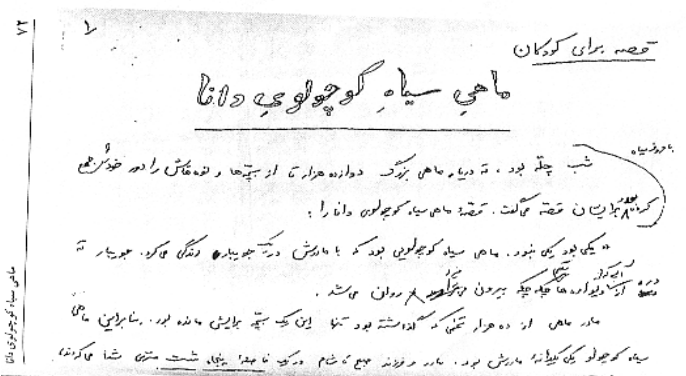 ۷۲
۱
قصه برای کودکان
ماهیِ سیاهِ کوچولویِ دانا
با حروف سیاه
شب چلّه بود، ته دریا ماهی بزرگ دوازده هزار تا از بچّه‌ها و نوه‌هاش را دور خودش جمع
کرده بود و برایشان قصه می‌گفت. قصهٔ ماهی سیاه کوچولوی دانا را:
«یکی بود یکی نبود. ماهی سیاه کوچولویی بود که با مادرش در جویباری زندگی می‌کرد. جویبار ته
دره از دیواره‌ها چکه چکه بیرون روان می‌شد.
مادر ماهی از ده هزار تخمی که گذاشته بود تنها این یک بچّه برایش مانده بود. بنابراین ماهی
سیاه کوچولو یکی یکدانهٔ مادرش بود. مادر و فرزند صبح تا شام در یک فاصلهٔ پنجاه شصت متری شنا می‌کردند
ماهی سیاه کوچولوی دانا